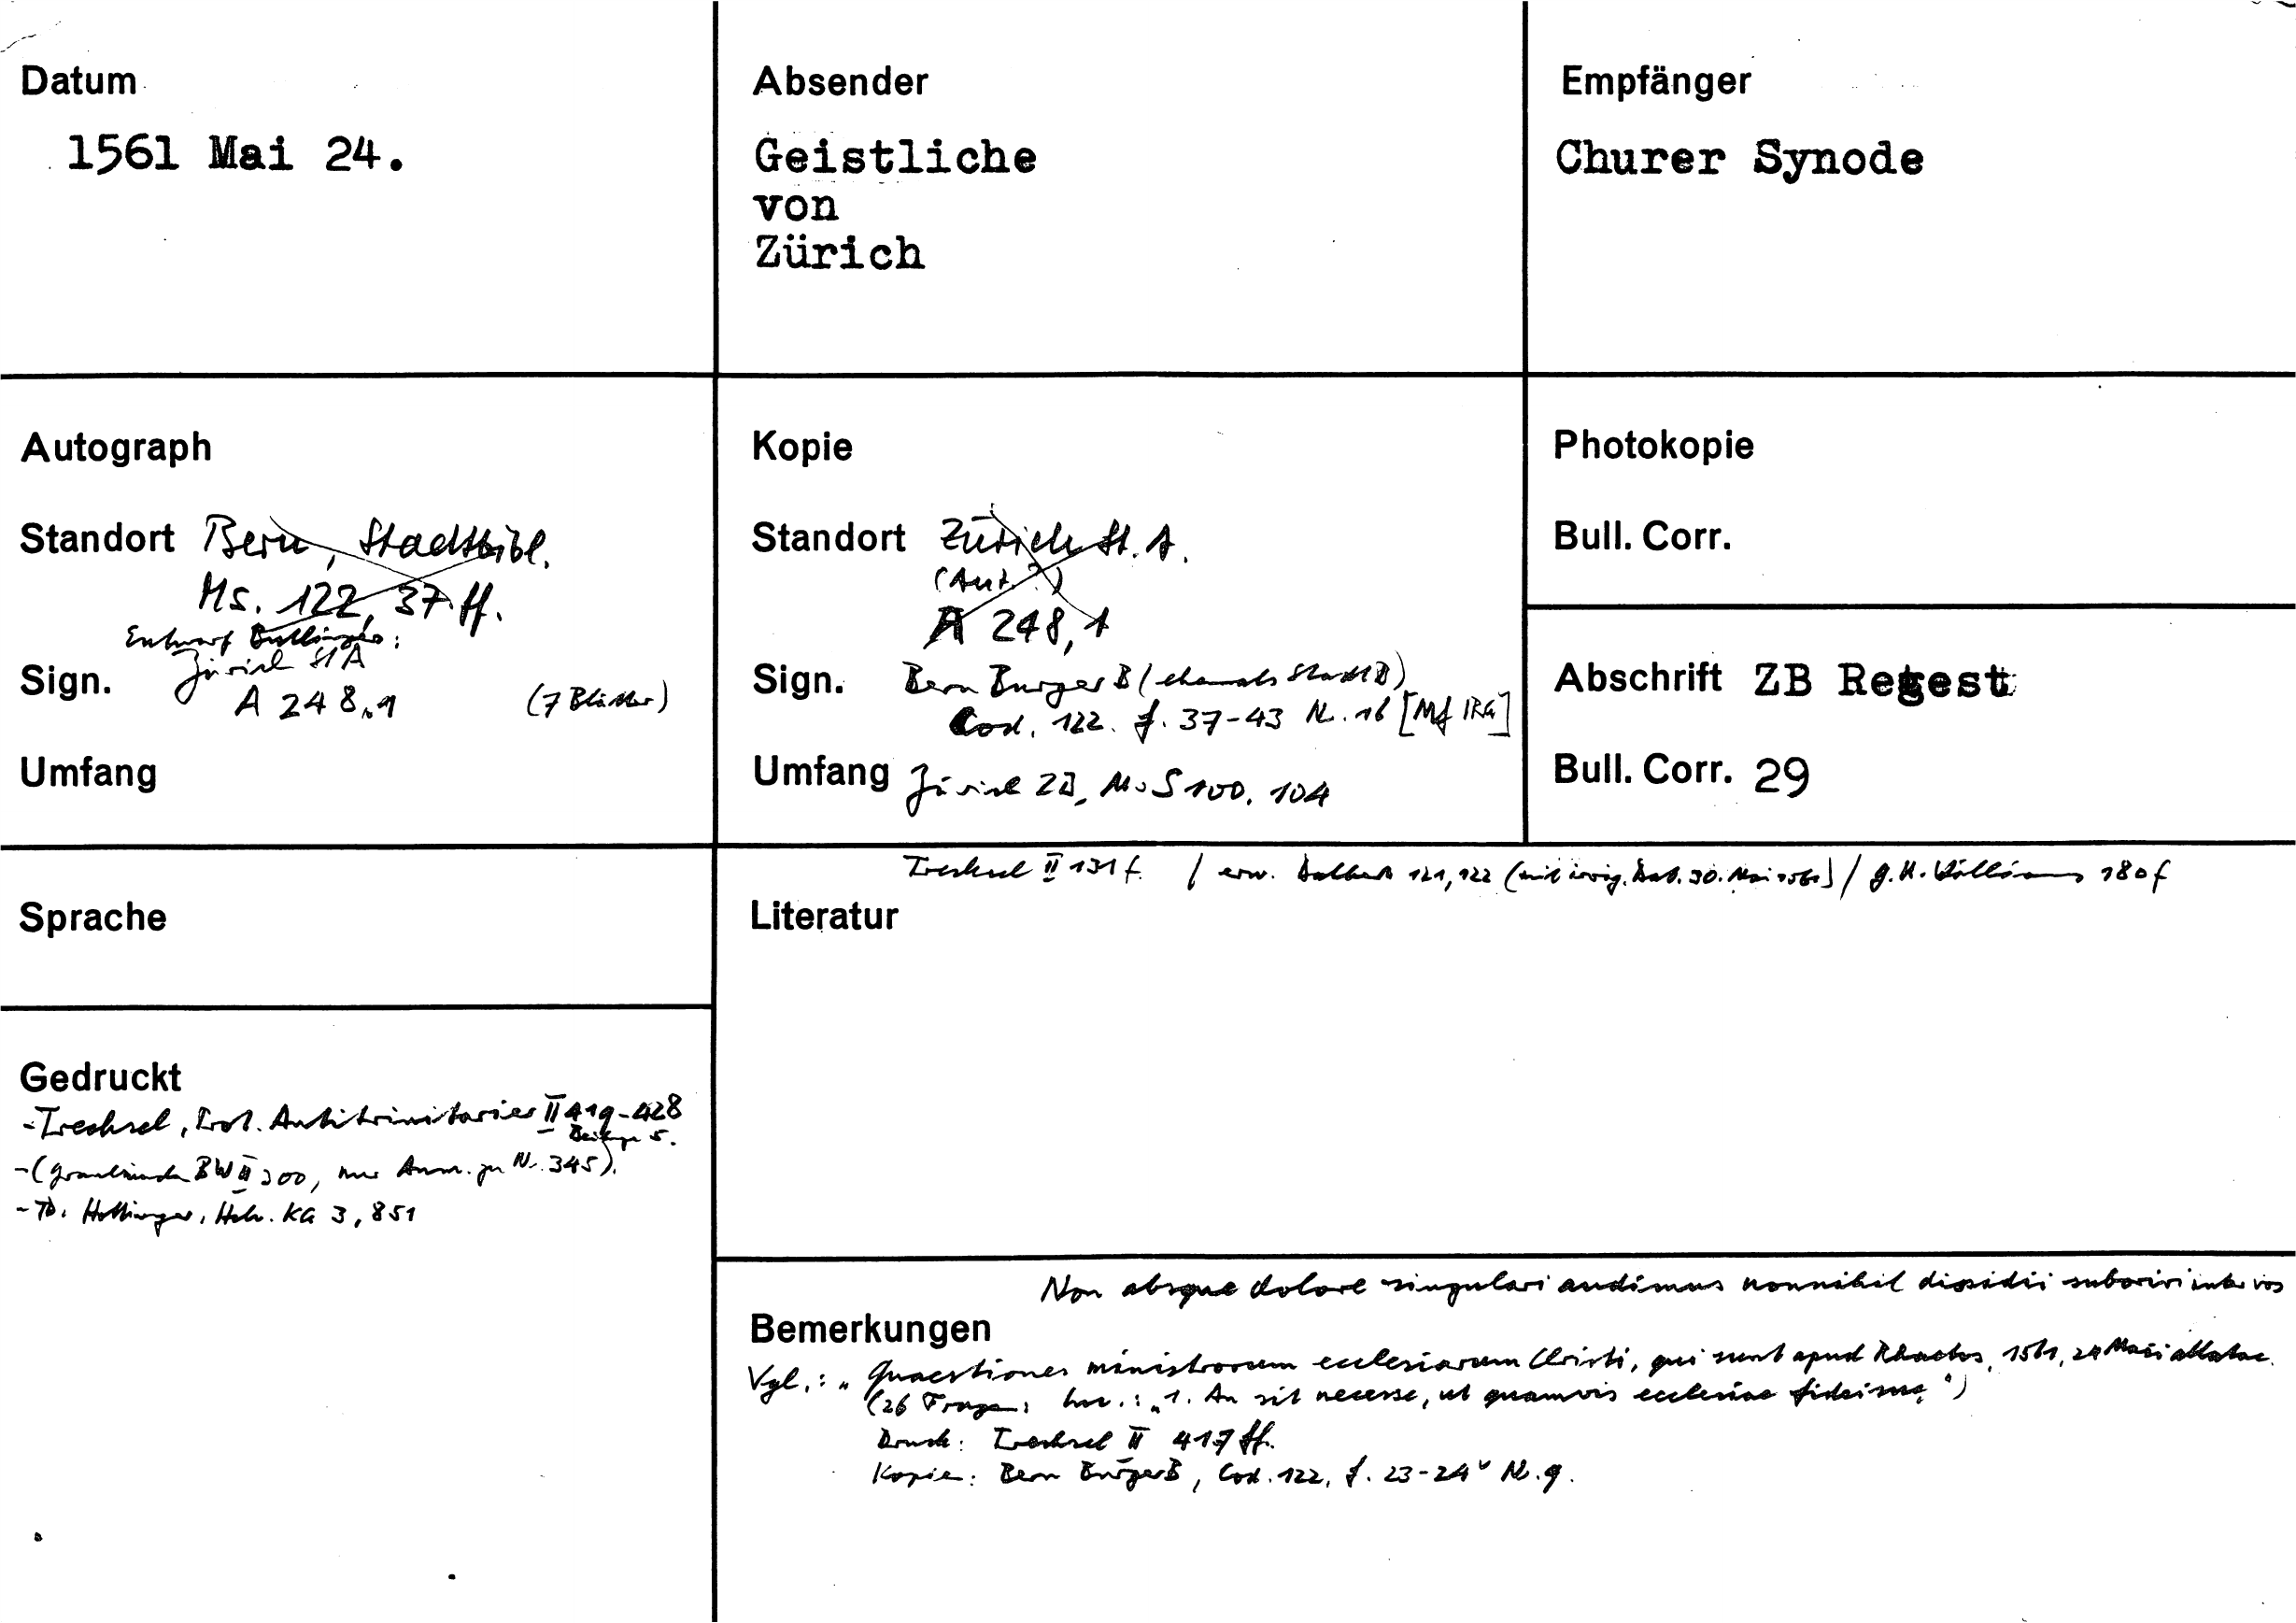 Datum
1561 Mai 24.
Absender
Geistliche
von
Zürich
Empfänger
Churer Synode
Autograph
Standort Bern, Stadtbibl.
Ms. 122, 37 ff.
Entwurf Bullingers:
Zürich StA
Sign. A 248,1 (7 Blätter)
Umfang
Kopie
Standort Zürich St. A.
(Aut.?)
A 248,1
Sign. Bern Burger B (ehemals Stadt B)
Cod. 122. f. 37-43 Nr. 16 [Mf IRG]
Umfang Zürich ZB, Ms S 100, 104
Photokopie
Bull. Corr.
Abschrift ZB Regest
Bull. Corr. 29
Sprache
Trechsel II 131 f. / erw. 121, 122 (mit irrig. Dat. 30. Mai 1561) / G. H. Williams 180 f
Literatur
Gedruckt
- Trechsel, Prot. Antitrinitarier II 419-428
Beilage 5.
- (Graubünden BW II 300, nur Anm. zu Nr. 345).
- Tb. Hottinger, Helv. KG 3, 851
Non absque dolore singulari audimus nonnihil dissidii suboriri inter vos
Bemerkungen
Vgl.: „Quaestiones ministrorum ecclesiarum Christi, qui sunt apud Rhaetos, 1561, 24 Maii allatae.
(26 Fragen: Inc.: „1. An sit necesse, ut quamvis ecclesiae fidei suae")
Druck: Trechsel II 417 ff.
Kopie: Bern BurgerB, Cod. 122, f. 23-24v Nr. 9.